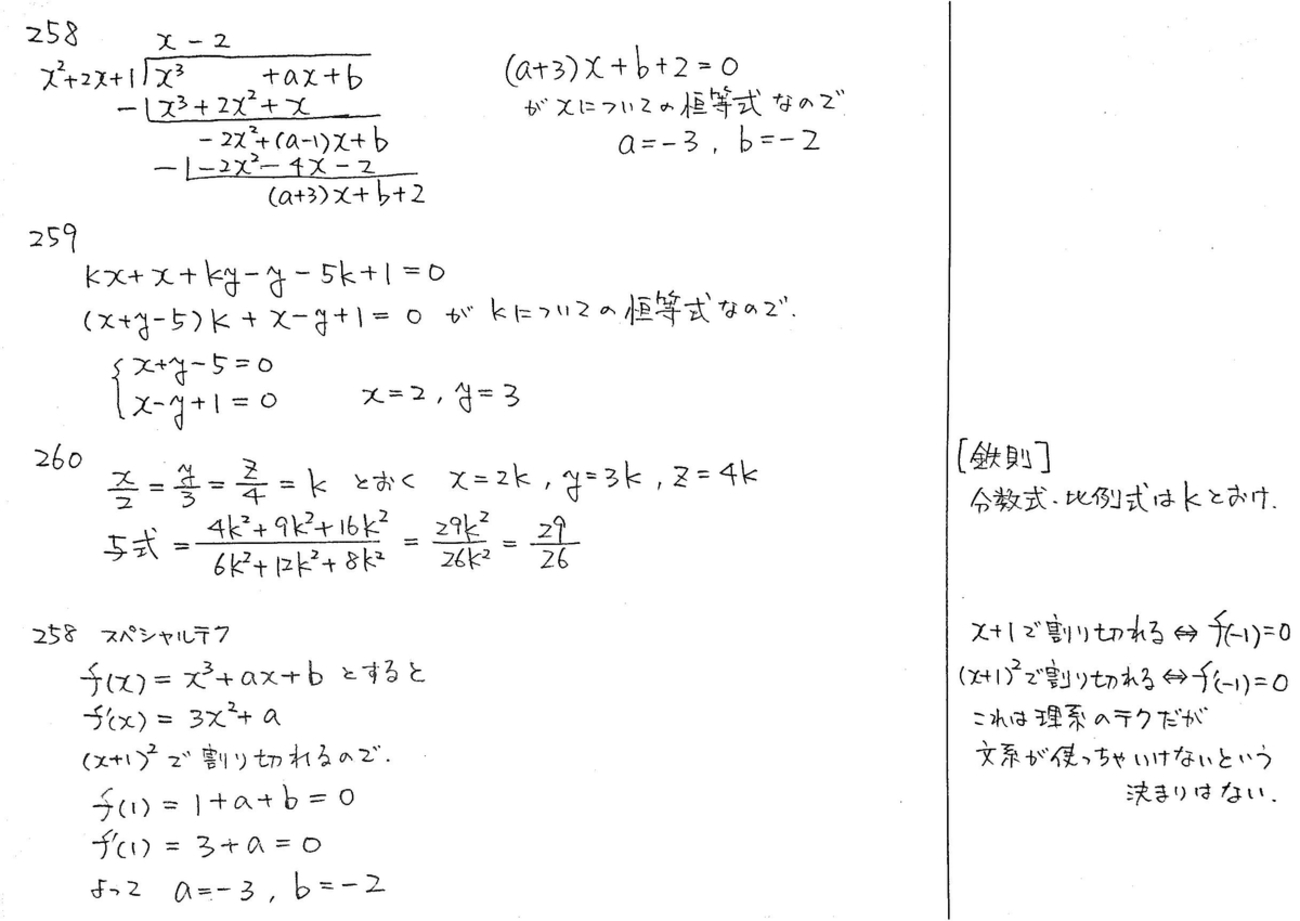 258
x-2
x²+2x+1 x³ +ax+b
-x³+2x²+x
-2x²+(a-1)x+b
-2x²-4x-2
(a+3)x+b+2
(a+3)x+b+2=0
がxについての恒等式なので
a=-3, b=-2
259
kx+x+ky-y-5k+1=0
(x+y-5)k+x-y+1=0 がkについての恒等式なので.
{x+y-5=0
x-y+1=0 x=2, y=3
260
x/2=y/3=z/4=k とおく x=2k, y=3k, z=4k
与式=(4k²+9k²+16k²)/(6k²+12k²+8k²)=29k²/26k²=29/26
[鉄則]
分数式・比例式はkとおけ.
258 スペシャルテク
f(x)=x³+ax+b とすると
f'(x)=3x²+a
(x+1)²で割り切れるので.
f(1)=1+a+b=0
f'(1)=3+a=0
よって a=-3, b=-2
x+1で割り切れる⇔f(-1)=0
(x+1)²で割り切れる⇔f'(-1)=0
これは理系のテクだが
文系が使っちゃいけないという
決まりはない.